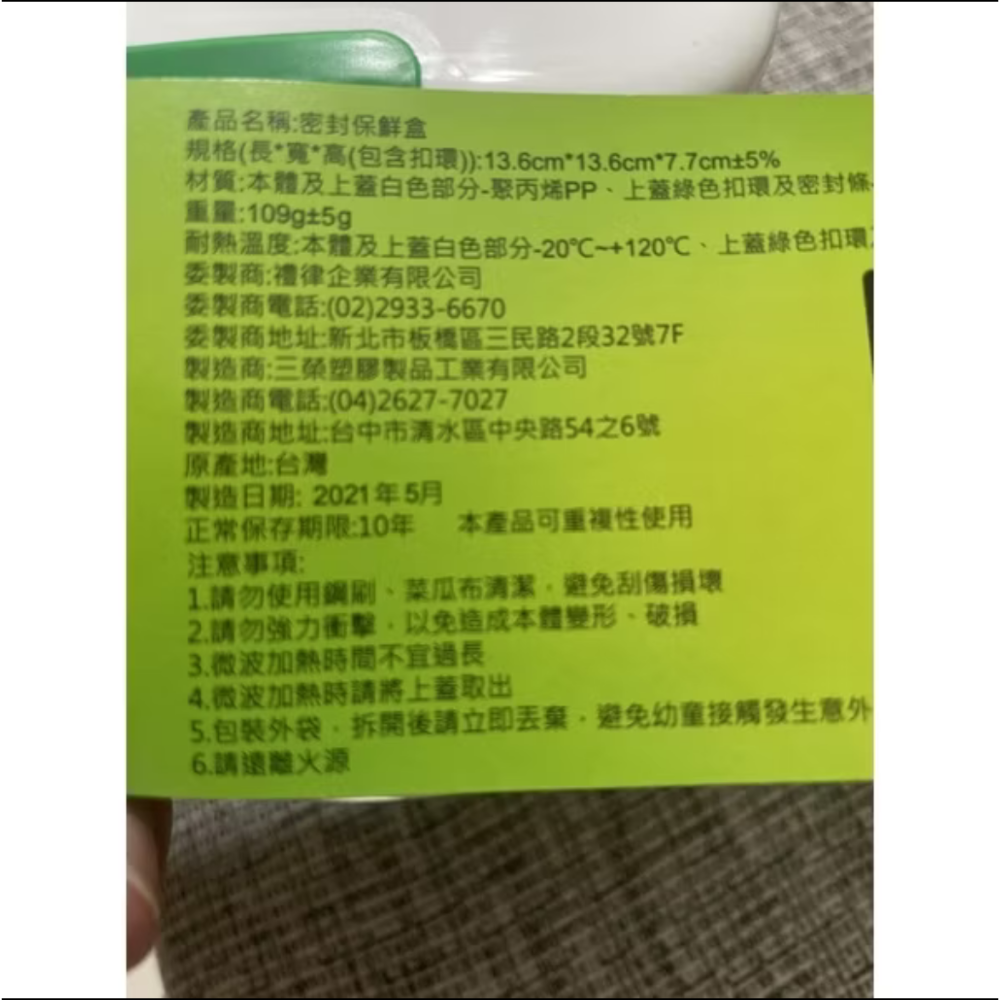 產品名稱:密封保鮮盒
規格(長*寬*高(包含扣環)):13.6cm*13.6cm*7.7cm±5%
材質:本體及上蓋白色部分-聚丙烯PP、上蓋綠色扣環及密封條-
重量:109g±5g
耐熱溫度:本體及上蓋白色部分-20℃~+120℃、上蓋綠色扣環
委製商:禮律企業有限公司
委製商電話:(02)2933-6670
委製商地址:新北市板橋區三民路2段32號7F
製造商:三榮塑膠製品工業有限公司
製造商電話:(04)2627-7027
製造商地址:台中市清水區中央路54之6號
原產地:台灣
製造日期: 2021年5月
正常保存期限:10年 本產品可重複性使用
注意事項:
1.請勿使用鋼刷、菜瓜布清潔，避免刮傷損壞
2.請勿強力衝擊，以免造成本體變形、破損
3.微波加熱時間不宜過長
4.微波加熱時請將上蓋取出
5.包裝外袋，拆開後請立即丟棄，避免幼童接觸發生意外
6.請遠離火源